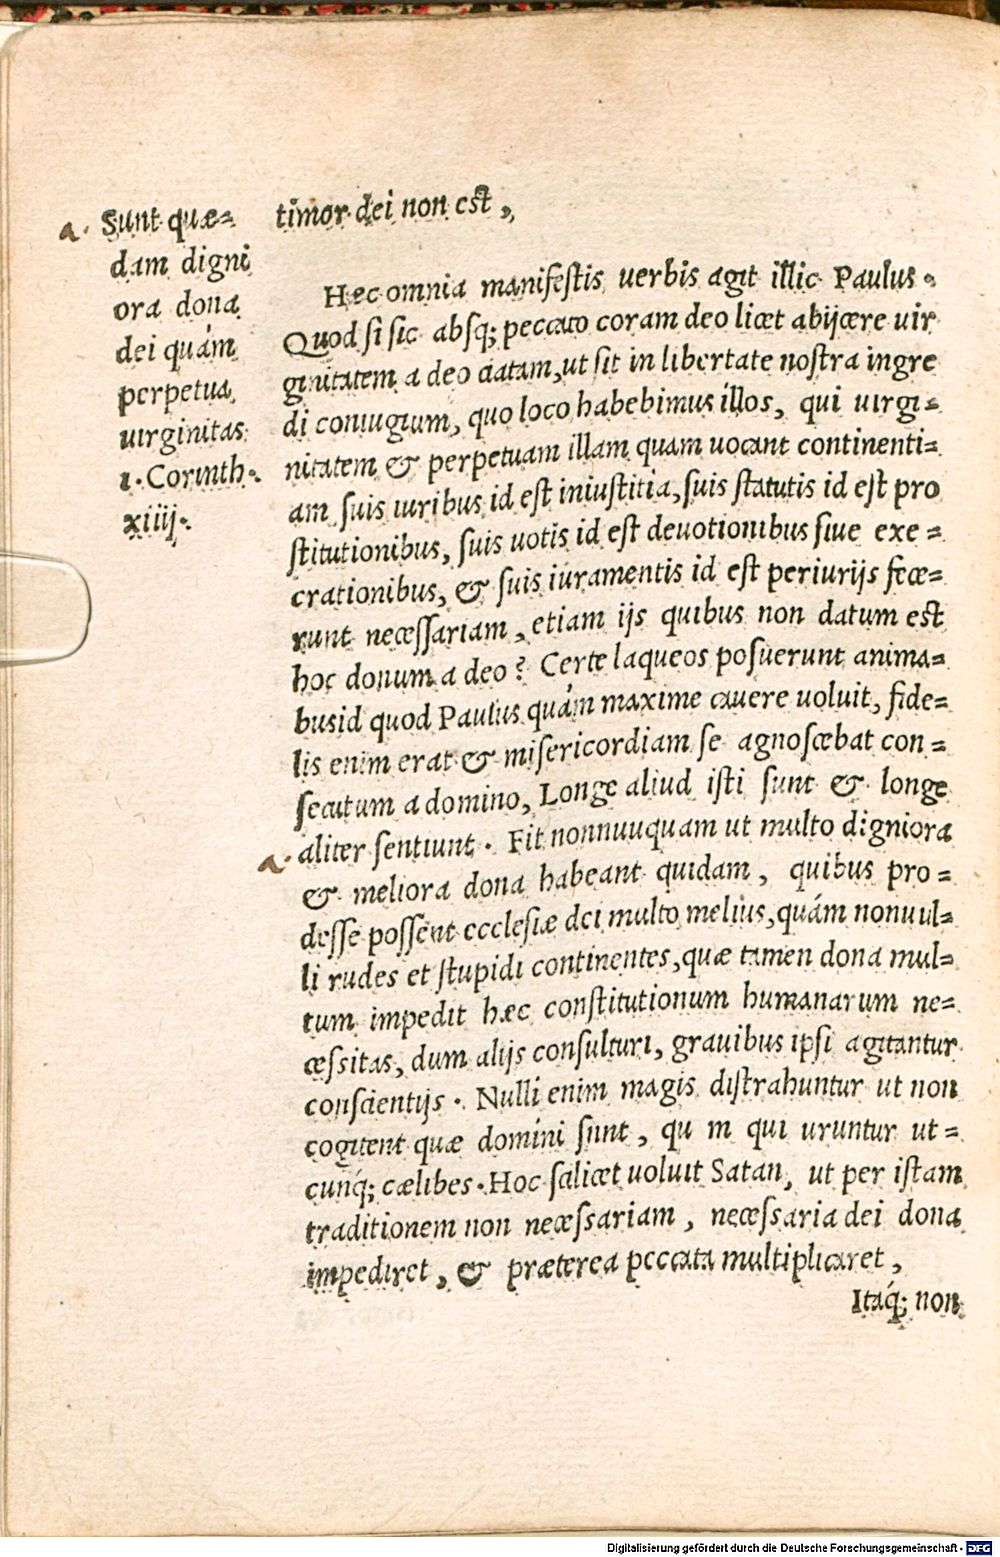 a. Sunt quæ=
dam digni
ora dona
dei quám
perpetua
uirginitas
1. Corinth.
xiiij.
timor dei non est,
Hęc omnia manifestis uerbis agit illic Paulus.
Quod si sic absq; peccato coram deo licet abijcere uir
ginitatem a deo datam, ut sit in libertate nostra ingre
di coniugium, quo loco habebimus illos, qui uirgi=
nitatem & perpetuam illam quam uocant continenti=
am suis iuribus id est iniustitia, suis statutis id est pro
stitutionibus, suis uotis id est deuotionibus siue exe=
crationibus, & suis iuramentis id est periurijs fece=
runt necessariam, etiam ijs quibus non datum est
hoc donum a deo? Certe laqueos posuerunt anima=
busid quod Paulus quám maxime cauere uoluit, fide=
lis enim erat & misericordiam se agnoscebat con=
secutum a domino, Longe aliud isti sunt & longe
a. aliter sentiunt. Fit nonnuuquam ut multo digniora
& meliora dona habeant quidam, quibus pro=
desse possent ecclesiæ dei multo melius, quám nonuul=
li rudes et stupidi continentes, quæ tamen dona mul=
tum impedit hæc constitutionum humanarum ne=
cessitas, dum alijs consulturi, grauibus ipsi agitantur
conscientijs. Nulli enim magis distrahuntur ut non
cogitent quæ domini sunt, qu m qui uruntur ut=
cunq́; cælibes. Hoc scilicet uoluit Satan, ut per istam
traditionem non necessariam, necessaria dei dona
impediret, & præterea peccata multiplicaret,
Itaq́; non
Digitalisierung gefördert durch die Deutsche Forschungsgemeinschaft - DFG